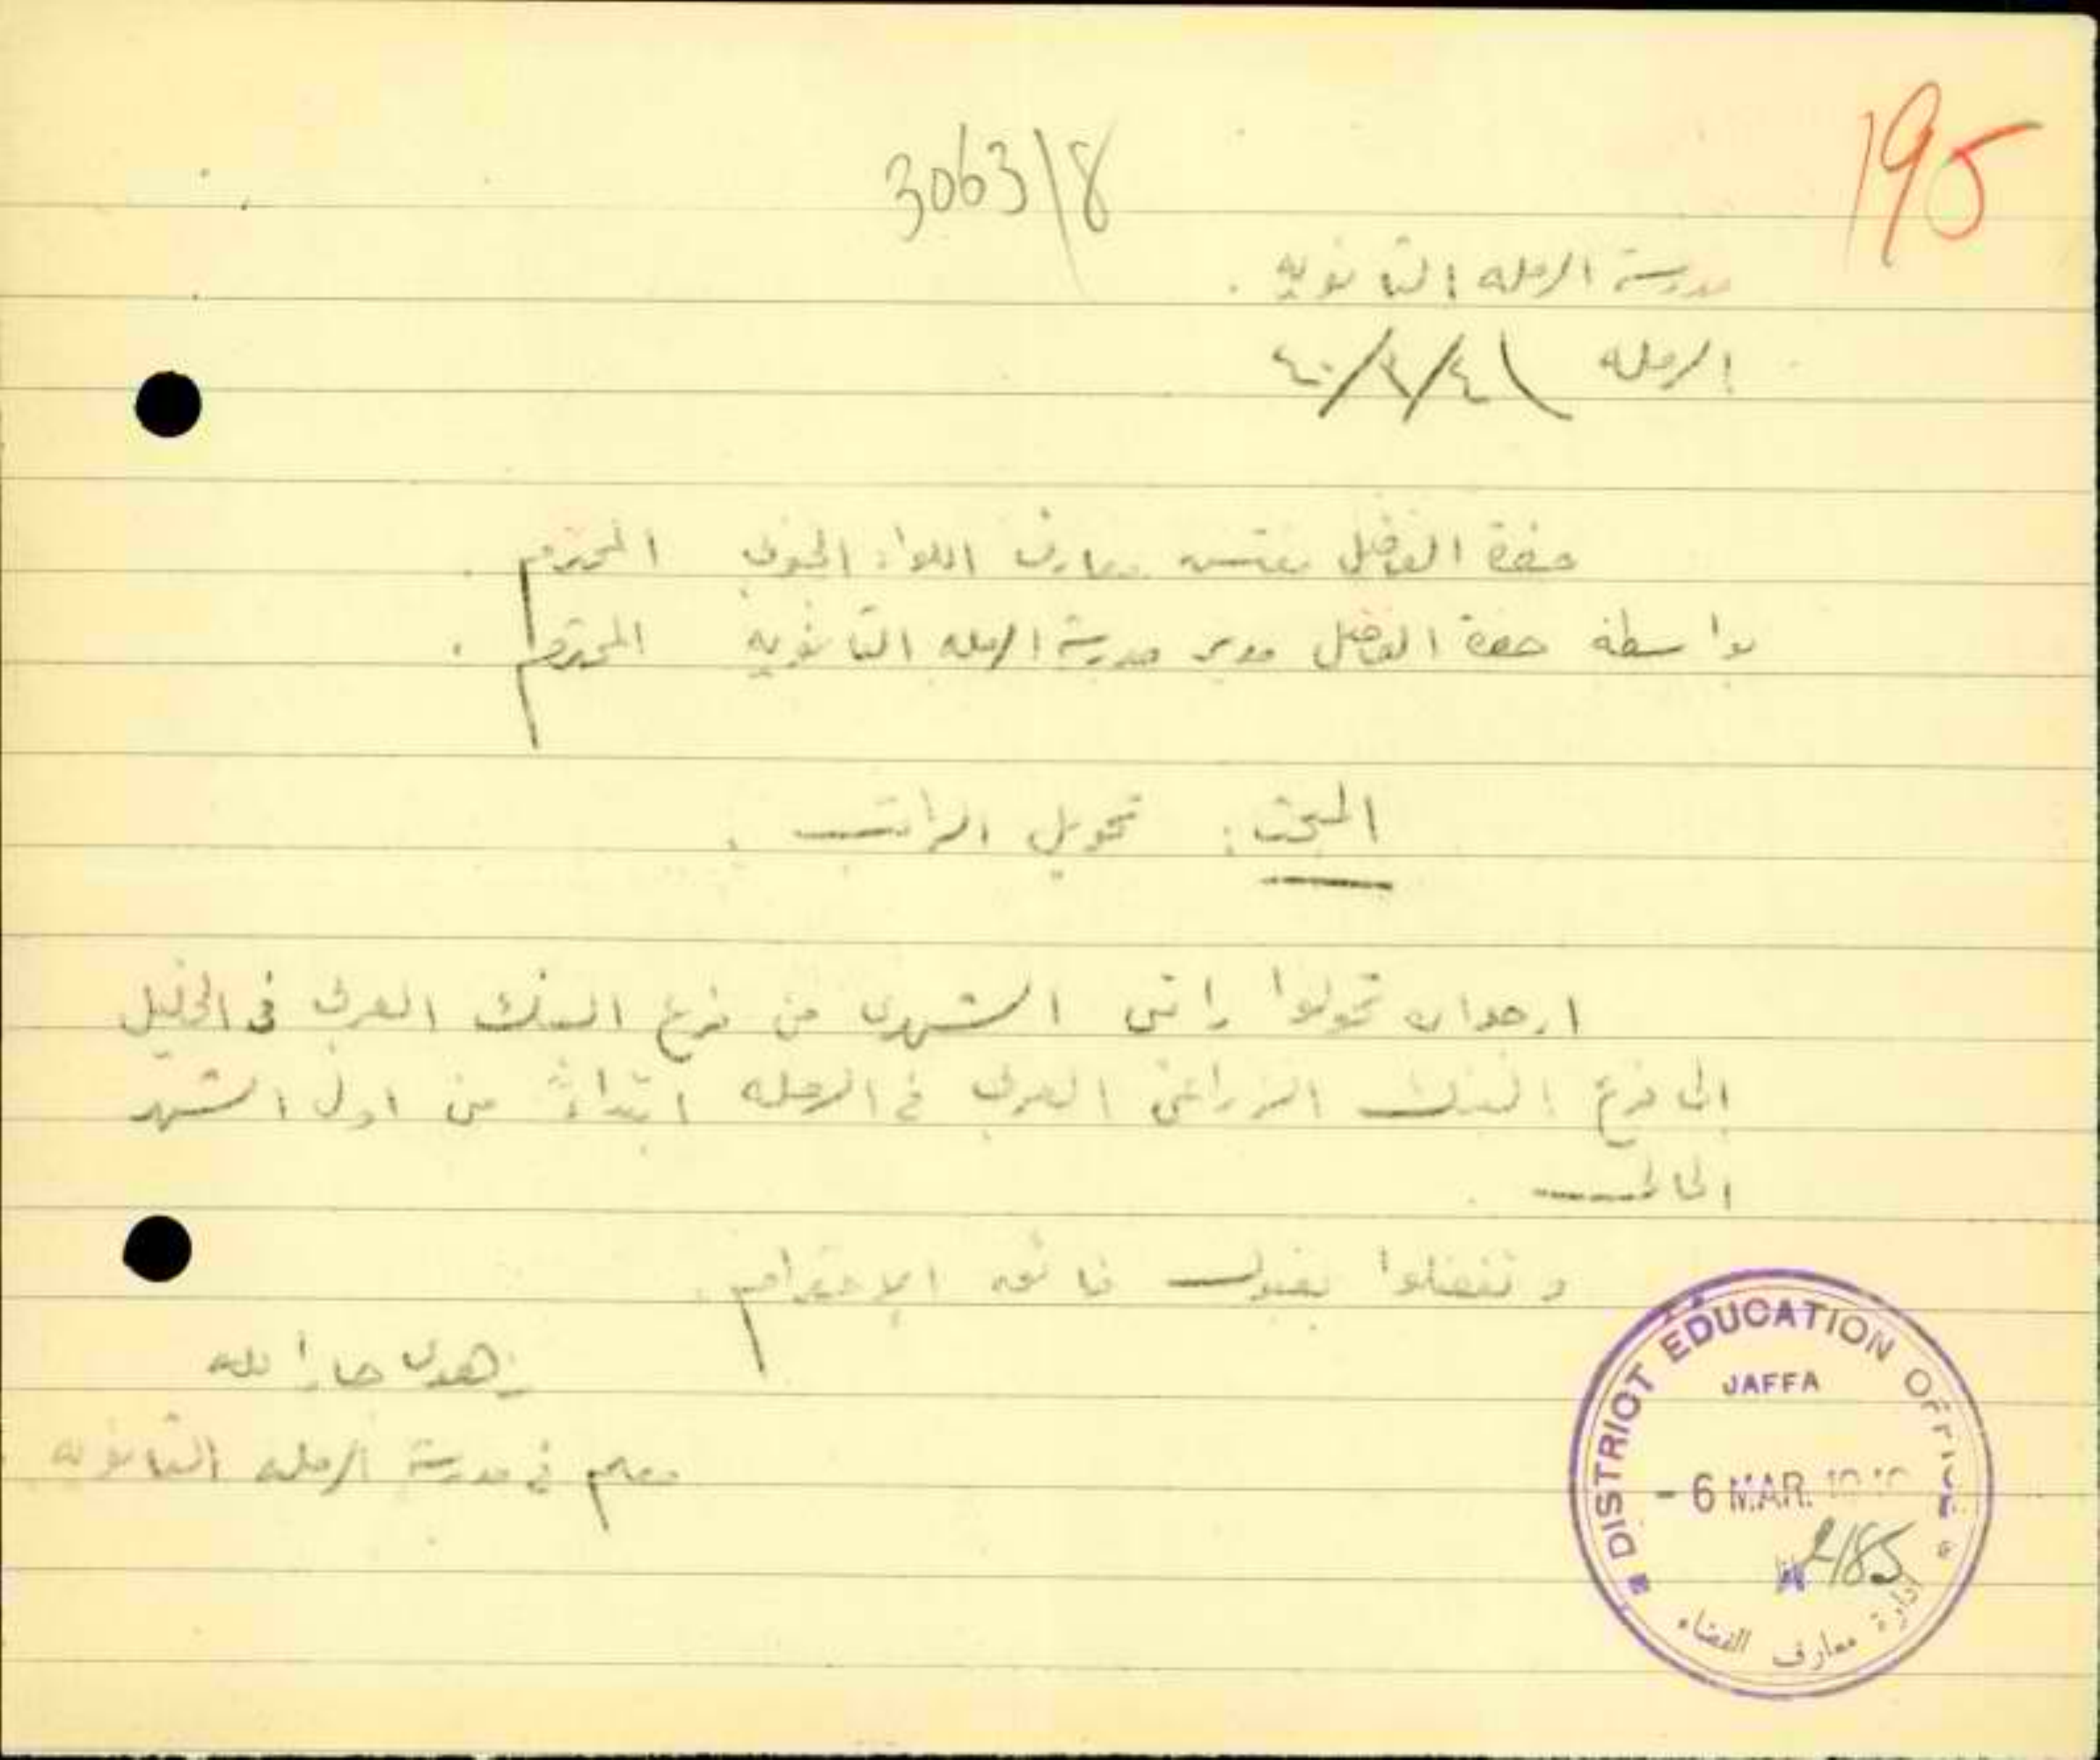 195
3063/8
مدرسة الرمله الثانويه .
الرمله ٤٠/٣/٤
حضرة الفاضل مفتش معارف اللواء الجنوبي المحترم .
بواسطة حضرة الفاضل مدير مدرسة الرمله الثانويه المحترم .
المبحث : تحويل الراتب .
ارجو ان تحولوا راتبي الشهري من فرع البنك العربي في الخليل
إلى فرع البنك الزراعي العربي في الرمله ابتداءً من اول الشهر
الحالي .
و تفضلوا بقبول فائق الاحترام .
زهدي جار الله
معلم في مدرسة الرمله الثانويه
DISTRICT EDUCATION OFFICE
JAFFA
- 6 MAR.
2185
ادارة معارف القضاء